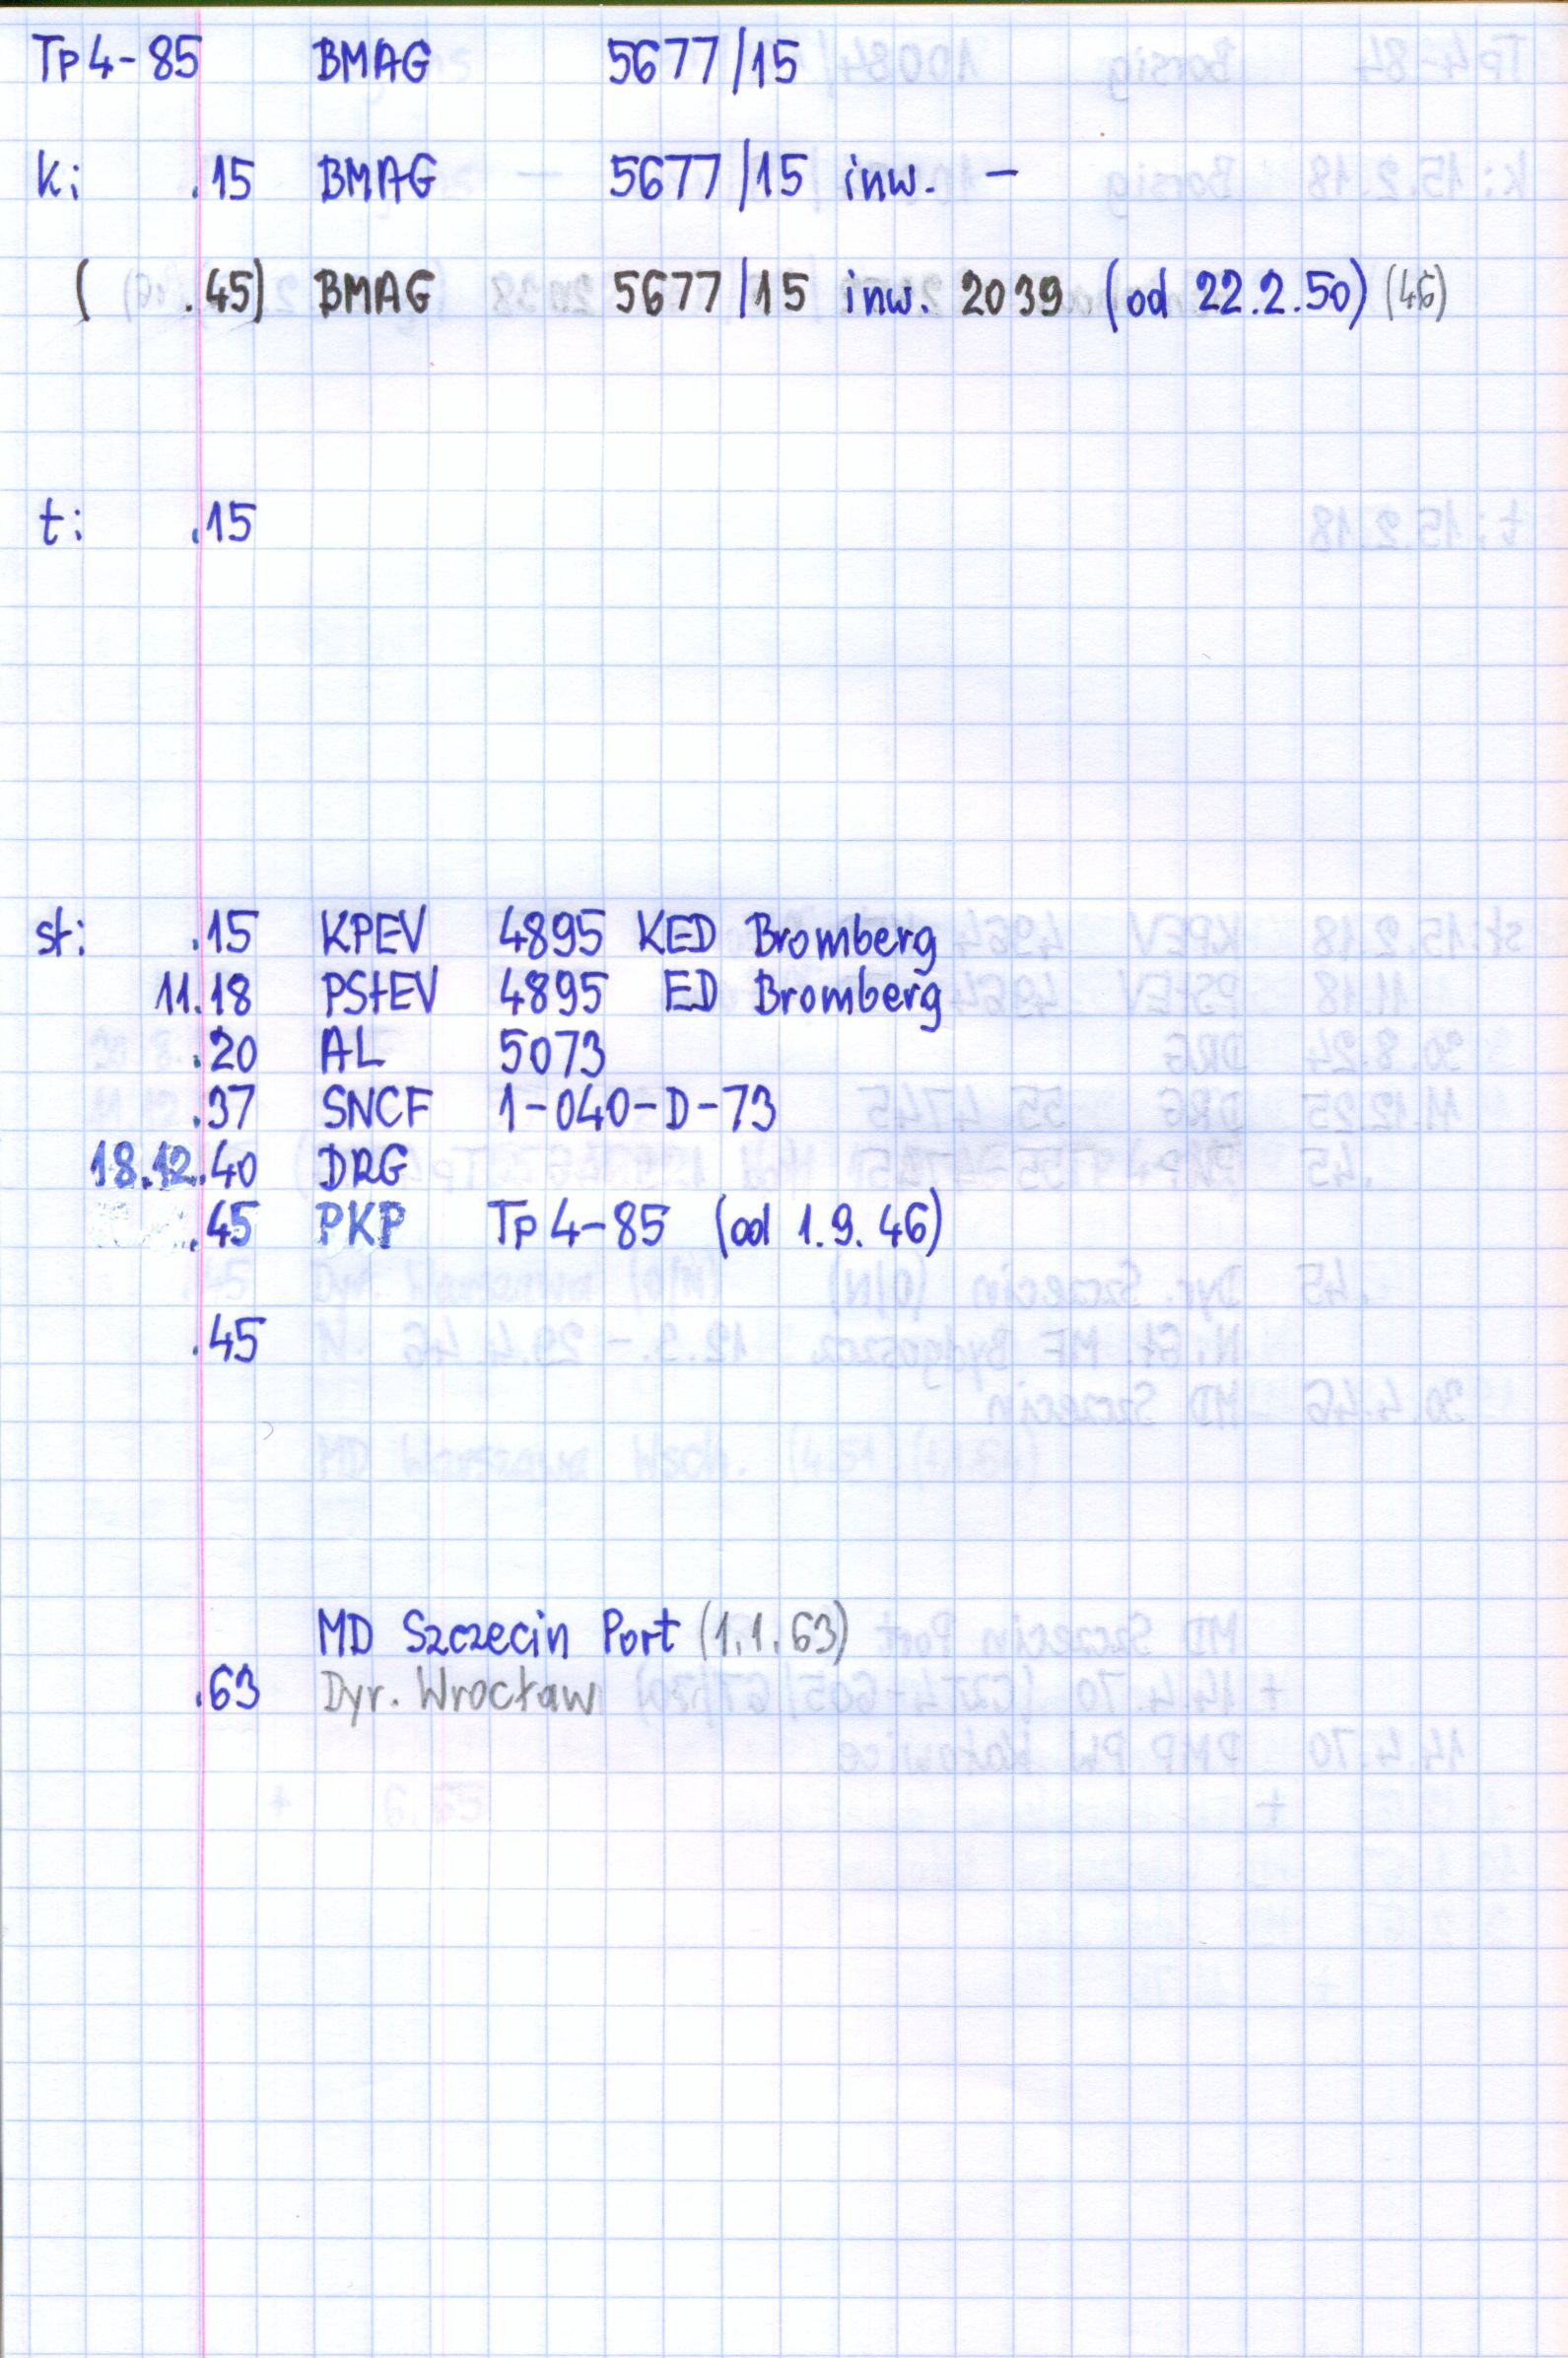 Tp4-85 BMAG 5677/15
k: .15 BMAG 5677/15 inw. -
( .45) BMAG 5677/15 inw. 2039 (od 22.2.50) (46)
t: .15
st: .15 KPEV 4895 KED Bromberg
11.18 PStEV 4895 ED Bromberg
.20 AL 5073
.37 SNCF 1-040-D-73
18.12.40 DRG
.45 PKP Tp4-85 (od 1.9.46)
.45
MD Szczecin Port (1.1.63)
.63 Dyr. Wrocław